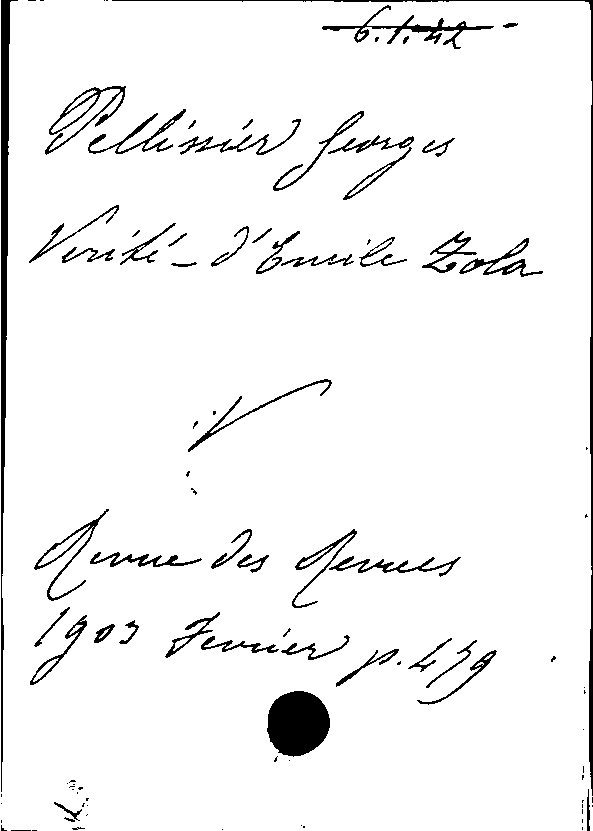 6.1.42
Pellissier Georges
Verité - d'Emile Zola
Revue des Revues
1903 Fevrier p. 479